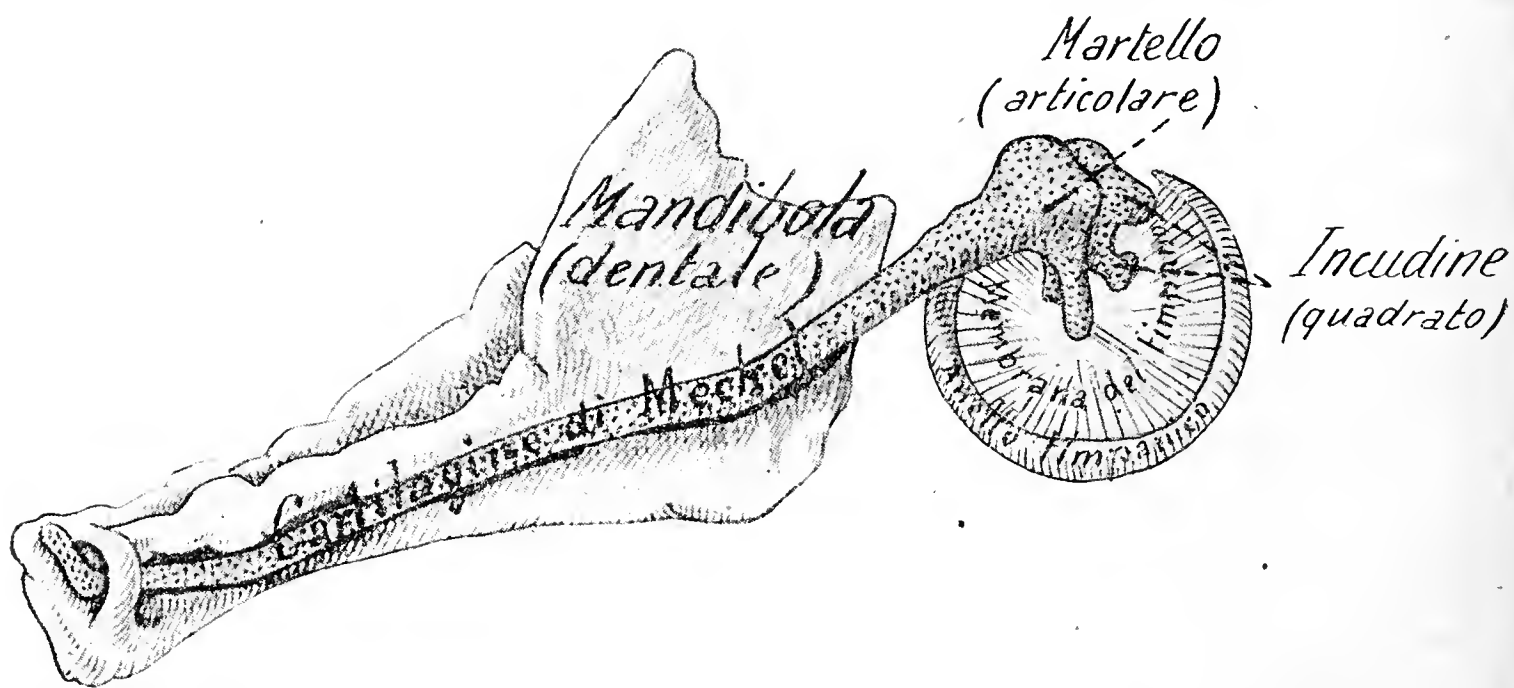 Martello
(articolare)
Mandibola
(dentale)
Incudine
(quadrato)
Cartilagine di Meckel
Membrana del timpano
Anello timpanico